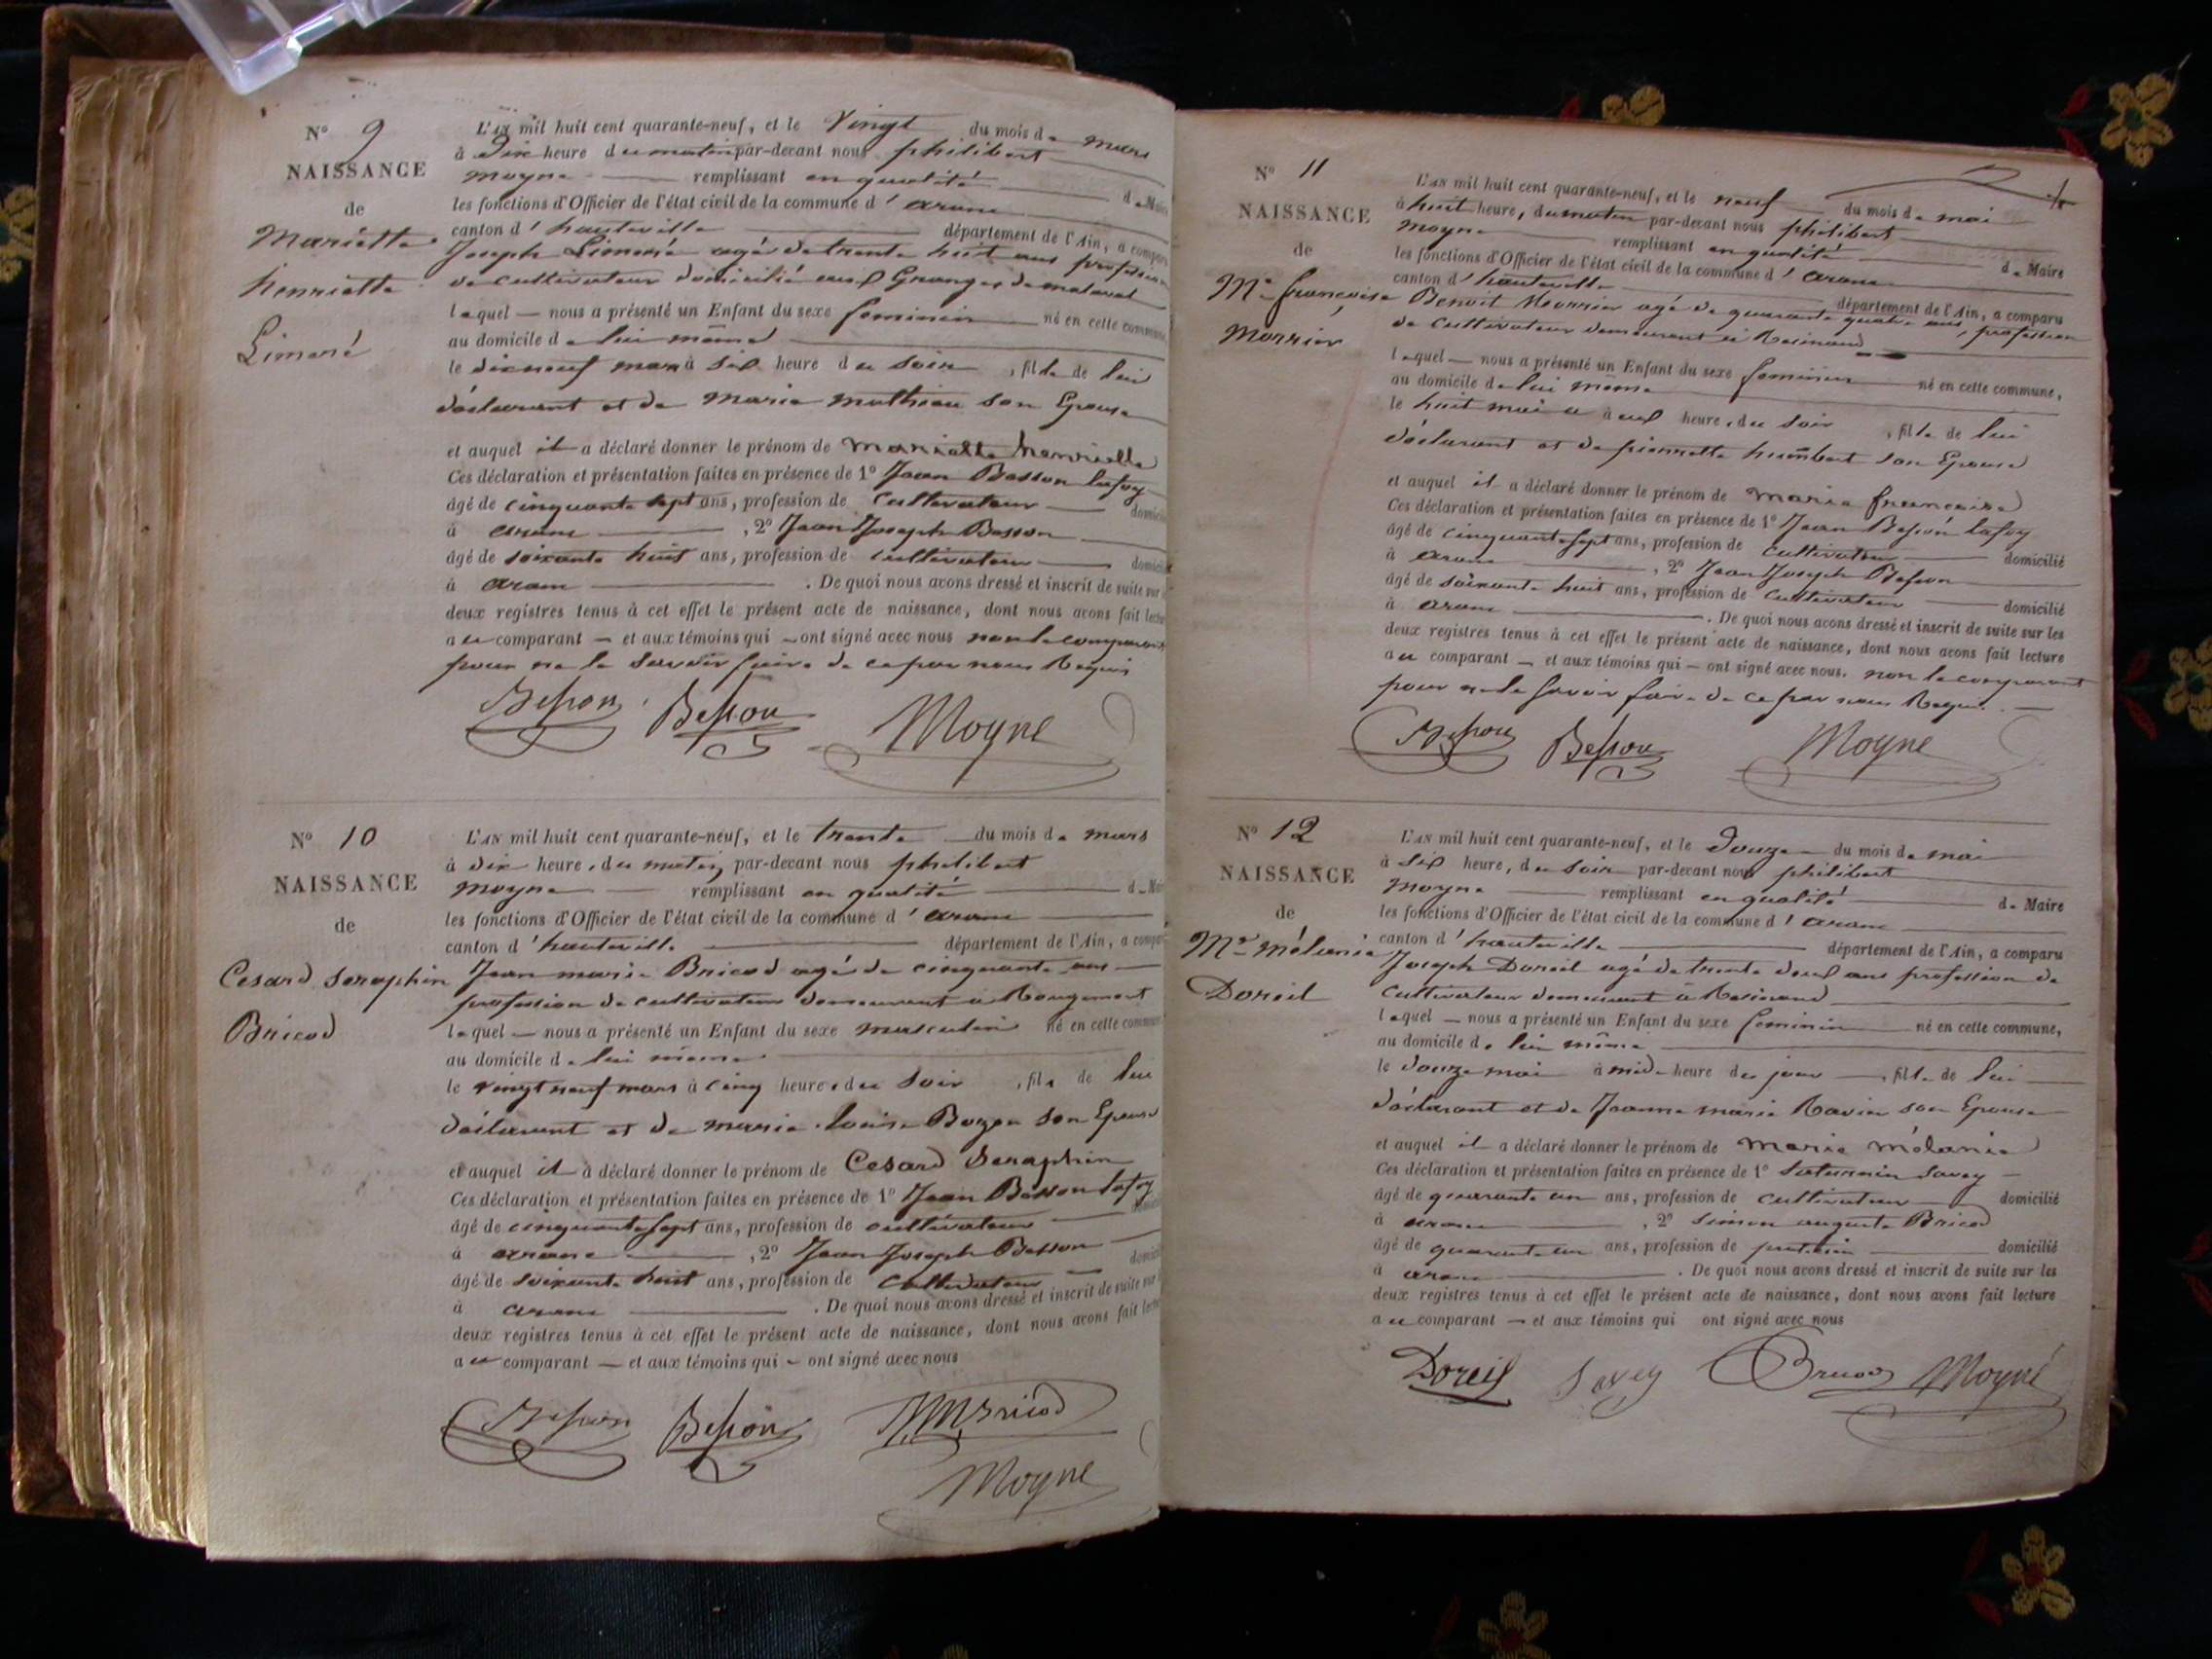 N° 9
NAISSANCE
de
Mariette
henriette
Limeré
L'AN mil huit cent quarante-neuf, et le Vingt du mois de mars
à Dix heure du matin par-devant nous philibert
moyne remplissant en qualité de Maire
les fonctions d'Officier de l'état civil de la commune d'arane
canton d'hauteville département de l'Ain, a comparu
Joseph Limeré agé de trente huit ans profession
de cultivateur domicilié aux Granges de malaval
lequel nous a présenté un Enfant du sexe feminin né en cette commune,
au domicile de lui même
le dixneuf mars à six heure du soir, fille de lui
déclarant et de marie mathieu son Epouse
et auquel il a déclaré donner le prénom de mariette henriette
Ces déclaration et présentation faites en présence de 1° Jean Besson lafoy
âgé de cinquante sept ans, profession de cultivateur domicilié
à arane, 2° Jean Joseph Besson
âgé de soixante huit ans, profession de cultivateur domicilié
à arane. De quoi nous avons dressé et inscrit de suite sur
deux registres tenus à cet effet le présent acte de naissance, dont nous avons fait lecture
au comparant et aux témoins qui ont signé avec nous non le comparant
pour ne le savoir faire de ce par nous Requis
Besson Besson Moyne
N° 10
NAISSANCE
de
Cesard Seraphin
Bricod
L'AN mil huit cent quarante-neuf, et le trente du mois de mars
à dix heure, du matin par-devant nous philibert
moyne remplissant en qualité de Maire
les fonctions d'Officier de l'état civil de la commune d'arane
canton d'hauteville département de l'Ain, a comparu
Jean marie Bricod agé de cinquante ans
profession de cultivateur demeurant à Rougemont
lequel nous a présenté un Enfant du sexe masculin né en cette commune
au domicile de lui même
le vingt neuf mars à cinq heure, du soir, fils de lui
déclarant et de marie louise Bozon son Epouse
et auquel il a déclaré donner le prénom de Cesard Seraphin
Ces déclaration et présentation faites en présence de 1° Jean Besson lafoy
âgé de cinquante sept ans, profession de cultivateur
à arane, 2° Jean Joseph Besson
âgé de soixante huit ans, profession de cultivateur
à arane. De quoi nous avons dressé et inscrit de suite sur
deux registres tenus à cet effet le présent acte de naissance, dont nous avons fait lecture
au comparant et aux témoins qui ont signé avec nous
Besson Besson JMBricod
Moyne
N° 11
NAISSANCE
de
Me françoise
Morrier
L'AN mil huit cent quarante-neuf, et le neuf du mois de mai
à huit heure, du matin par-devant nous philibert
moyne remplissant en qualité de Maire
les fonctions d'Officier de l'état civil de la commune d'arane
canton d'hauteville département de l'Ain, a comparu
Benoit Morrier agé de quarante quatre ans, profession
de cultivateur demeurant à Resinand
lequel nous a présenté un Enfant du sexe feminin né en cette commune,
au domicile de lui même
le huit mai à heure, du soir, fille de lui
déclarant et de pierrette humbert son Epouse
et auquel il a déclaré donner le prénom de marie françoise
Ces déclaration et présentation faites en présence de 1° Jean Besson lafoy
âgé de cinquante sept ans, profession de cultivateur domicilié
à arane, 2° Jean Joseph Besson
âgé de soixante huit ans, profession de cultivateur domicilié
à arane. De quoi nous avons dressé et inscrit de suite sur les
deux registres tenus à cet effet le présent acte de naissance, dont nous avons fait lecture
au comparant et aux témoins qui ont signé avec nous. non le comparant
pour ne le savoir faire de ce par nous Requis.
Besson Besson Moyne
N° 12
NAISSANCE
de
Me mélanie
Doreil
L'AN mil huit cent quarante-neuf, et le Douze du mois de mai
à six heure, du soir par-devant nous philibert
moyne remplissant en qualité de Maire
les fonctions d'Officier de l'état civil de la commune d'arane
canton d'hauteville département de l'Ain, a comparu
Joseph Doreil agé de trente deux ans profession de
cultivateur demeurant à Resinand
lequel nous a présenté un Enfant du sexe feminin né en cette commune,
au domicile de lui même
le douze mai à midi heure du jour, fille de lui
déclarant et de Jeanne marie Ravier son Epouse
et auquel il a déclaré donner le prénom de marie mélanie
Ces déclaration et présentation faites en présence de 1° Saturnin Savey
âgé de quarante un ans, profession de cultivateur domicilié
à arane, 2° Simon auguste Bricod
âgé de quarante un ans, profession de domicilié
à arane. De quoi nous avons dressé et inscrit de suite sur les
deux registres tenus à cet effet le présent acte de naissance, dont nous avons fait lecture
au comparant et aux témoins qui ont signé avec nous
Doreil Savey Bricod Moyne